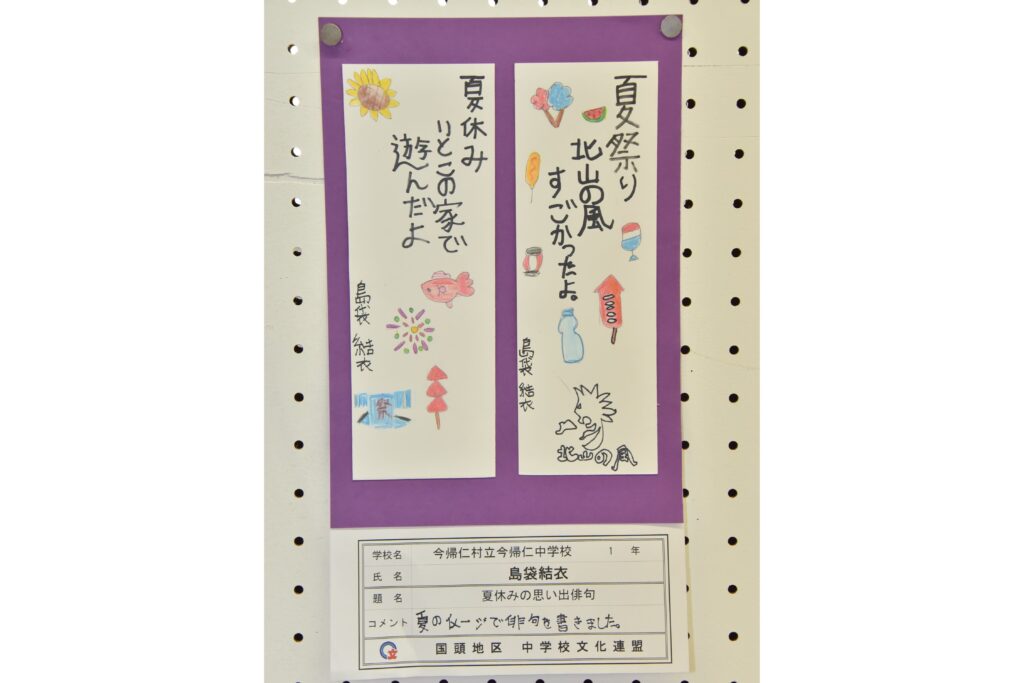 夏祭り
北山の風
すごかったよ。
島袋 結衣
北山の風
夏休み
いとこの家で
遊んだよ
島袋 結衣
祭
学校名 今帰仁村立今帰仁中学校 1 年
氏名 島袋結衣
題名 夏休みの思い出俳句
コメント 夏のイメージで俳句を書きました。
国頭地区 中学校文化連盟